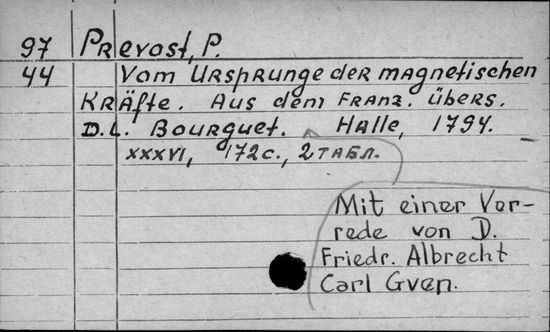 97 Prevost, P.
44 Vom Ursprunge der magnetischen
Kräfte. Aus dem Franz. übers.
D.L. Bourguet. Halle, 1794.
XXXVI, 172 с., 2 табл.
Mit einer Vor-
rede von D.
Friedr. Albrecht
Carl Gven.